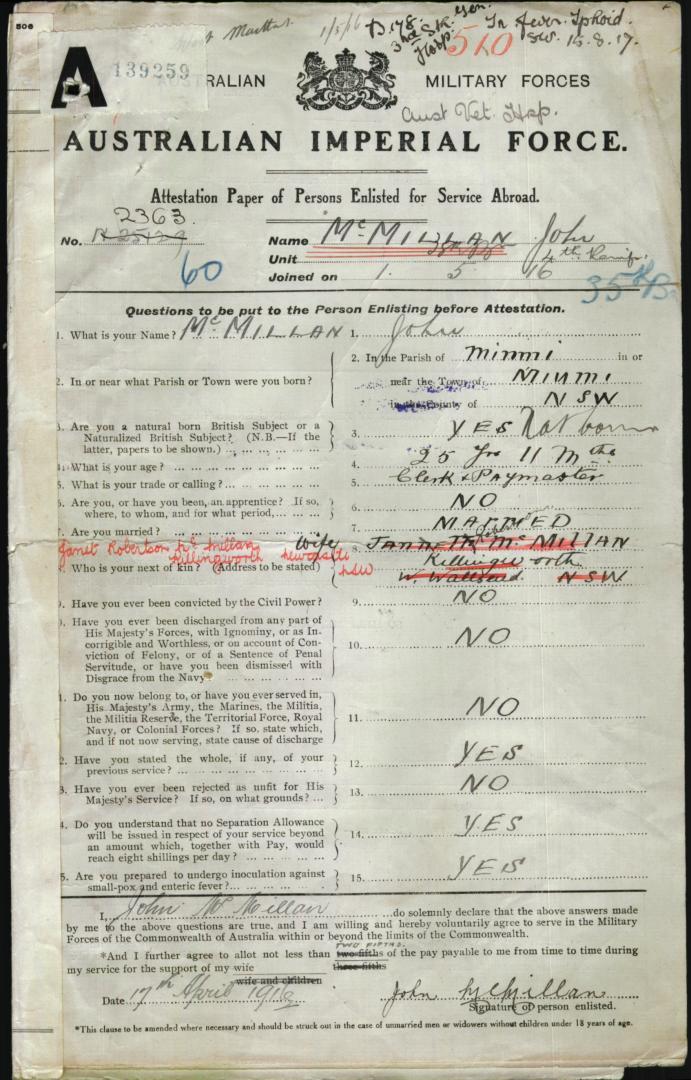 506
1/5/16 D.178. Gen.
3rd Hosp.
510
In fever. Typhoid.
15.8.17.
A
139259
AUSTRALIAN MILITARY FORCES
Aust Vet. Hsp.
AUSTRALIAN IMPERIAL FORCE.
Attestation Paper of Persons Enlisted for Service Abroad.
2363.
No. N 25129 Name McMILLAN John
60
Unit 4th Reinf.
35th B
Joined on 1. 5 16
Questions to be put to the Person Enlisting before Attestation.
1. What is your Name? McMILLAN 1. John
2. In or near what Parish or Town were you born? 2. In the Parish of Minmi in or
near the Town of MINMI
in the County of NSW
3. Are you a natural born British Subject or a
Naturalized British Subject? (N.B.—If the
latter, papers to be shown.) 3. YES Nat born
4. What is your age? 4. 25 Yrs 11 Mths
5. What is your trade or calling? 5. Clerk & Paymaster
6. Are you, or have you been, an apprentice? If so,
where, to whom, and for what period, 6. NO
7. Are you married? 7. MARRIED
Janet Robertson McMillan wife
Killingworth Newcastle
NSW
8. JANNETTA McMILLAN
Killingworth
8. Who is your next of kin (Address to be stated) W Wallsend NSW
9. Have you ever been convicted by the Civil Power? 9. NO
10. Have you ever been discharged from any part of
His Majesty's Forces, with Ignominy, or as In-
corrigible and Worthless, or on account of Con-
viction of Felony, or of a Sentence of Penal
Servitude, or have you been dismissed with
Disgrace from the Navy 10. NO
11. Do you now belong to, or have you ever served in,
His Majesty's Army, the Marines, the Militia,
the Militia Reserve, the Territorial Force, Royal
Navy, or Colonial Forces? If so, state which,
and if not now serving, state cause of discharge 11. NO
12. Have you stated the whole, if any, of your
previous service? 12. YES
13. Have you ever been rejected as unfit for His
Majesty's Service? If so, on what grounds? 13. NO
14. Do you understand that no Separation Allowance
will be issued in respect of your service beyond
an amount which, together with Pay, would
reach eight shillings per day? 14. YES
15. Are you prepared to undergo inoculation against
small-pox and enteric fever? 15. YES
I, John McMillan do solemnly declare that the above answers made
by me to the above questions are true, and I am willing and hereby voluntarily agree to serve in the Military
Forces of the Commonwealth of Australia within or beyond the limits of the Commonwealth.
TWO FIFTHS.
*And I further agree to allot not less than two-fifths of the pay payable to me from time to time during
three-fifths
my service for the support of my wife
wife and children
Date 17th April 1916 John McMillan
Signature of person enlisted.
*This clause to be amended where necessary and should be struck out in the case of unmarried men or widowers without children under 18 years of age.